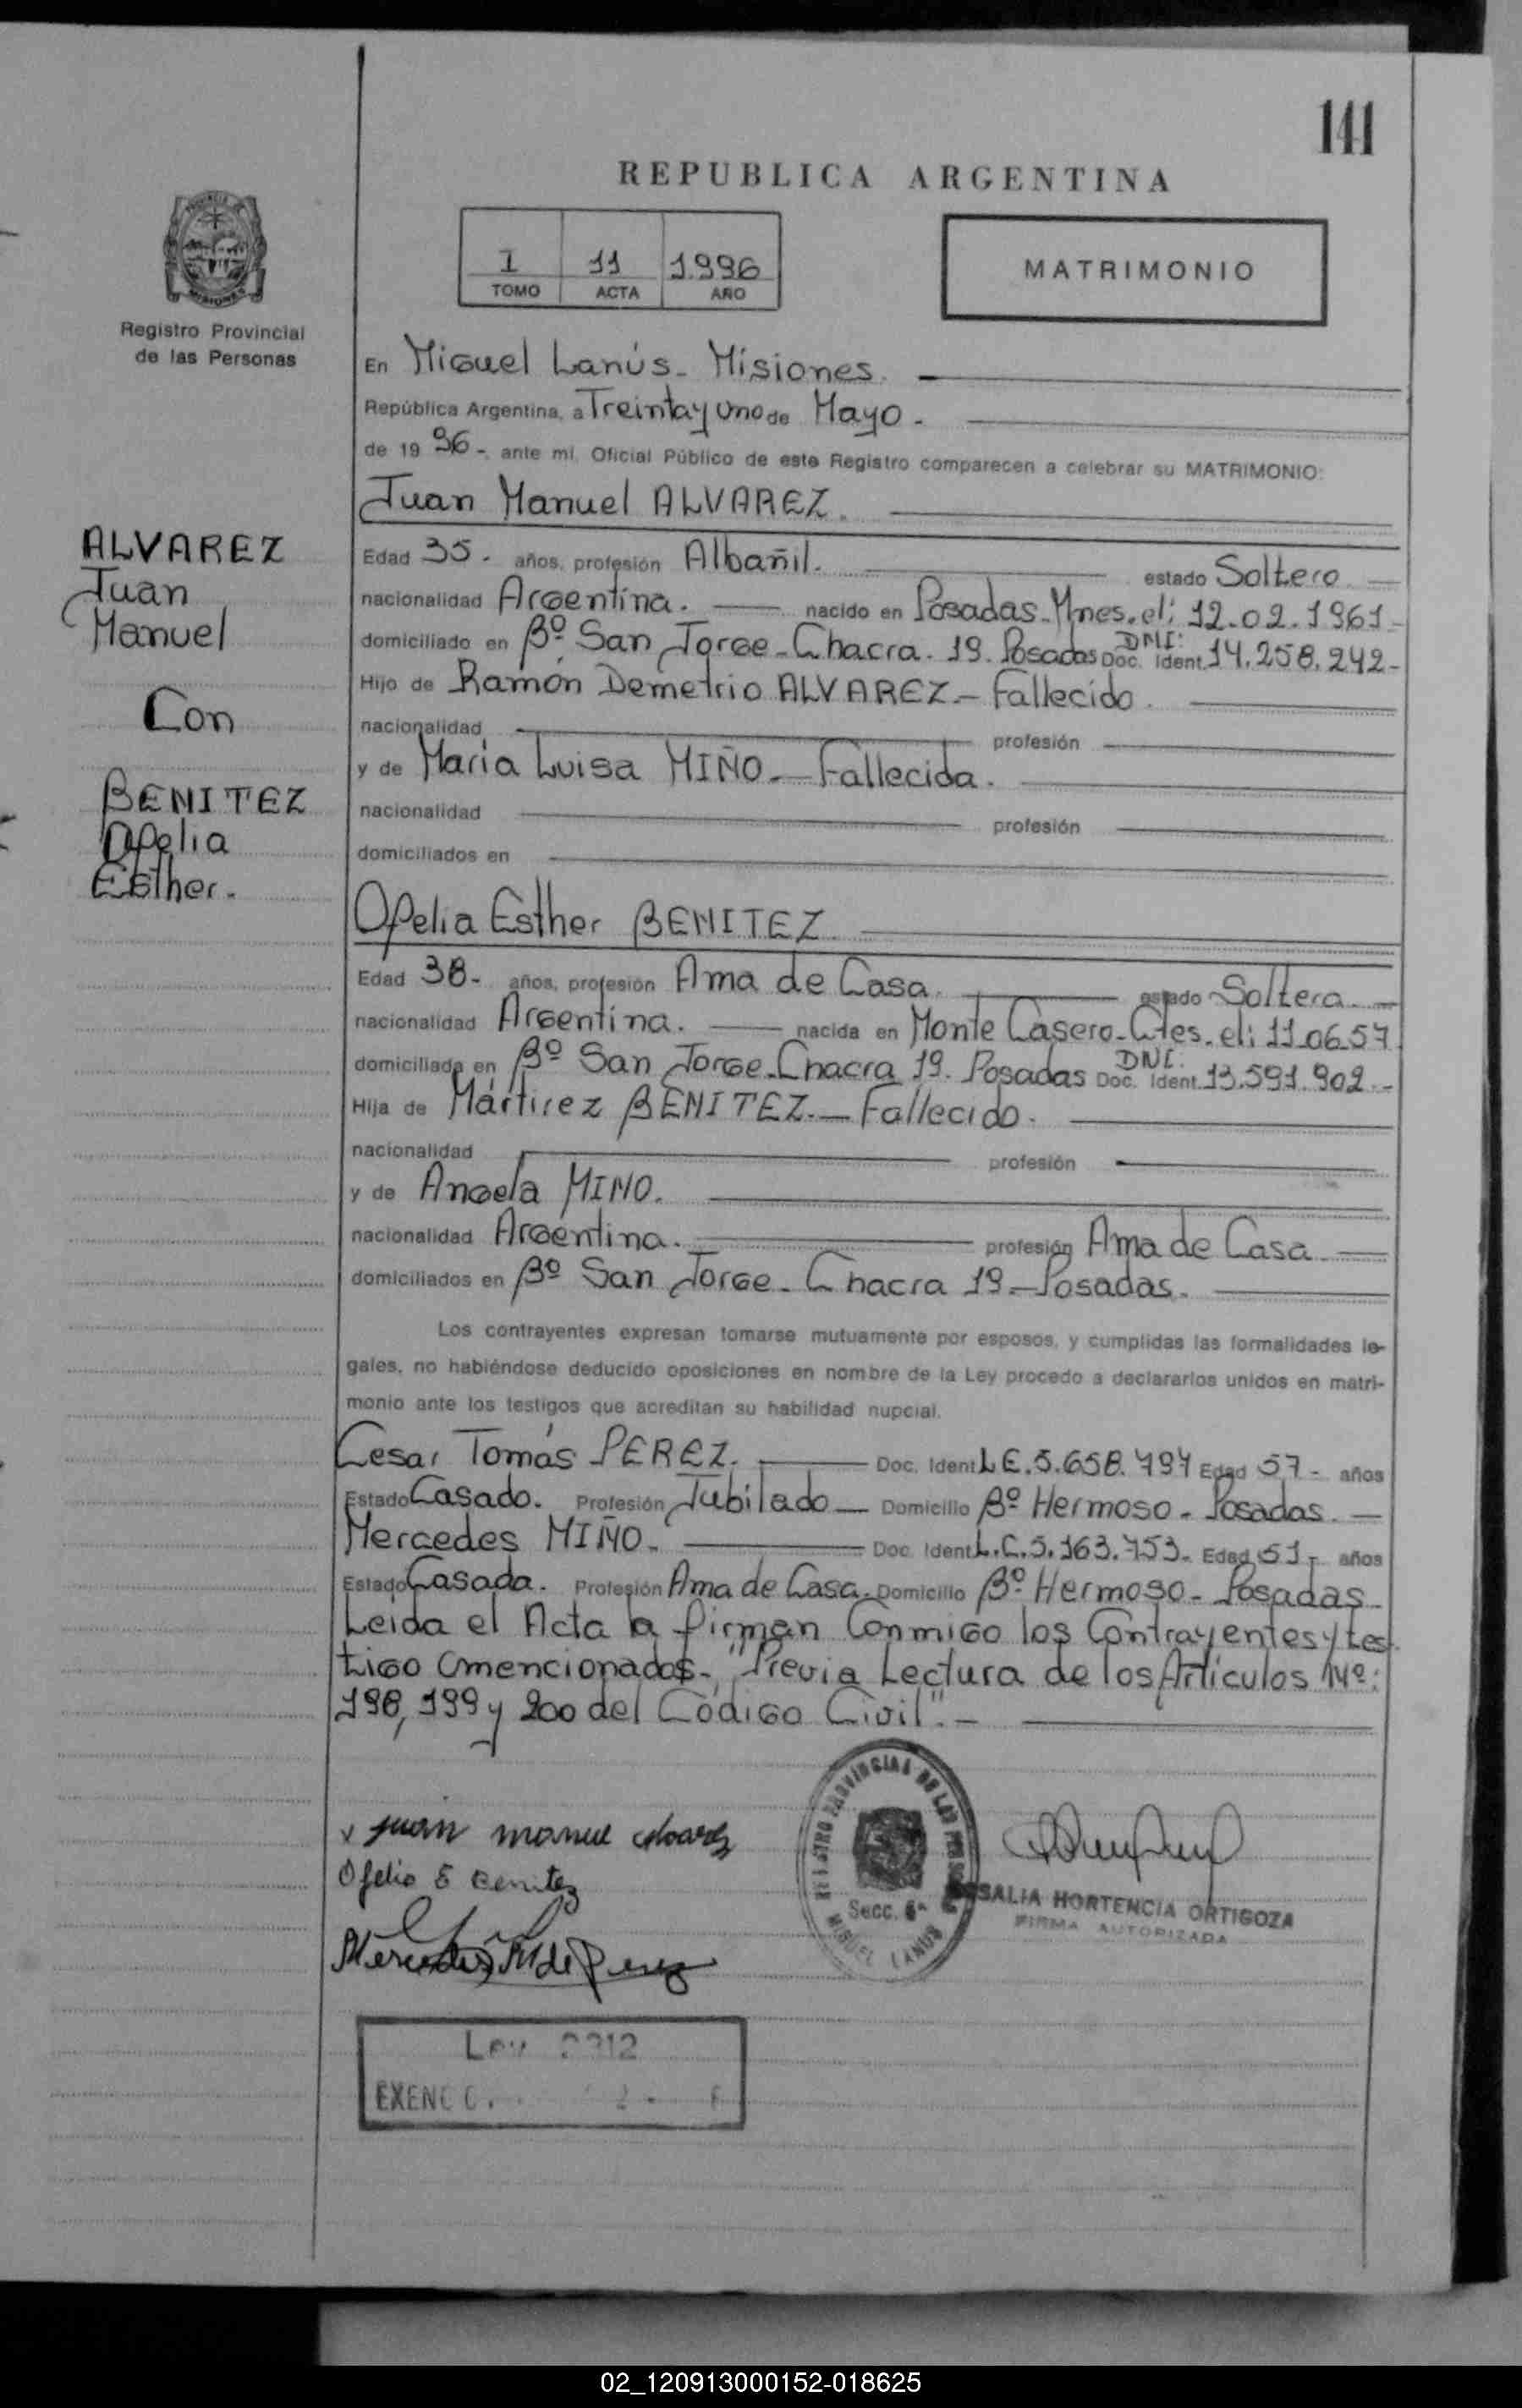 141
REPUBLICA ARGENTINA
I 11 1996
TOMO ACTA AÑO
MATRIMONIO
Registro Provincial
de las Personas
En Miguel Lanús - Misiones.
República Argentina, a Treinta y Uno de Mayo -
de 19 96 -, ante mí, Oficial Público de este Registro comparecen a celebrar su MATRIMONIO:
Juan Manuel ALVAREZ.
ALVAREZ
Juan
Manuel
Con
BENITEZ
Ofelia
Esther.
Edad 35 - años, profesión Albañil. estado Soltero
nacionalidad Argentina. nacido en Posadas - Mnes. el: 12.02.1961 -
domiciliado en Bº San Jorge - Chacra. 19. Posadas DNI: Doc. Ident. 14.258.242 -
Hijo de Ramón Demetrio ALVAREZ. - Fallecido.
nacionalidad profesión
y de María Luisa MIÑO. - Fallecida.
nacionalidad profesión
domiciliados en
Ofelia Esther BENITEZ
Edad 38 - años, profesión Ama de Casa. estado Soltera. -
nacionalidad Argentina. nacida en Monte Casero - Ctes. el: 11.06.57
domiciliada en Bº San Jorge - Chacra 19. Posadas DNI: Doc. Ident. 13.591.902. -
Hija de Mártirez BENITEZ. - Fallecido.
nacionalidad profesión
y de Angela MINO.
nacionalidad Argentina. profesión Ama de Casa
domiciliados en Bº San Jorge - Chacra 19 - Posadas.
Los contrayentes expresan tomarse mutuamente por esposos, y cumplidas las formalidades le-
gales, no habiéndose deducido oposiciones en nombre de la Ley procedo a declararlos unidos en matri-
monio ante los testigos que acreditan su habilidad nupcial.
Cesar Tomás PEREZ. Doc. Ident. L.E. 5.658.794 Edad 57 - años
Estado Casado. Profesión Jubilado - Domicilio Bº Hermoso - Posadas. -
Mercedes MIÑO. Doc. Ident. L.C. 5.163.753. Edad 51 - años
Estado Casada. Profesión Ama de Casa. Domicilio Bº Hermoso - Posadas
Leida el Acta la firman Conmigo los Contrayentes y tes
tigo mencionados - "Previa Lectura de los Artículos Nº:
198, 199 y 200 del Código Civil". -
x Juan manuel Alvarez
Ofelia E Benitez
Mercedes M de Perez
REGISTRO PROVINCIAL DE LAS PERSONAS
Secc. 6ª
MIGUEL LANUS
ROSALIA HORTENCIA ORTIGOZA
FIRMA AUTORIZADA
Ley
02_120913000152-018625